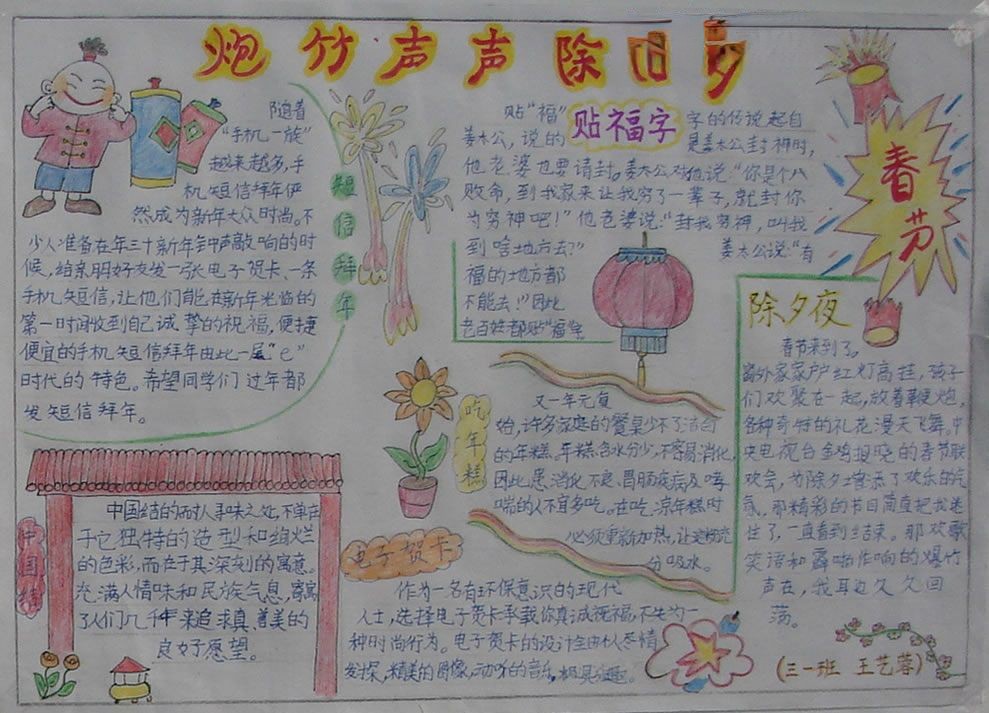 炮竹声声除旧岁
短信拜年
随着
“手机一族”
越来越多，手
机短信拜年俨
然成为新年大众时尚。不
少人准备在年三十新年钟声敲响的时
候，给亲朋好友发一张电子贺卡、一条
手机短信，让他们能在新年光临的
第一时间收到自己诚挚的祝福，便捷
便宜的手机短信拜年由此一展“e”
时代的特色。希望同学们过年都
发短信拜年。
贴福字
贴“福”字的传说起自
姜太公，说的是姜太公封神时，
他老婆也要请封。姜太公对他说：“你是个八
败命，到我家来让我穷了一辈子，就封你
为穷神吧！”他老婆说：“封我穷神，叫我
到啥地方去？”姜太公说：“有
福的地方都
不能去！”因此
老百姓都贴“福”字。
春节
除夕夜
春节来到了。
窗外家家户户红灯高挂，孩子
们欢聚在一起，放着鞭炮，
各种奇特的礼花漫天飞舞。中
央电视台金鸡报晓的春节联
欢会，为除夕之宵添了欢乐的气
氛。那精彩的节目简直把我迷
住了，一直看到结束。那欢歌
笑语和霹啪作响的爆竹
声在，我耳边久久回
荡。
吃年糕
又一年元复
始，许多家庭的餐桌少不了洁白
的年糕。年糕含水分少，不容易消化，
因此患消化不良、胃肠疾病及哮
喘的人不宜多吃。在吃凉年糕时
必须重新加热，让它充
分吸水。
中国结
中国结的耐人寻味之处，不单在
于它独特的造型和绚烂
的色彩，而在于其深刻的寓意。
充满人情味和民族气息，寄寓
了人们几千年来追求真、善美的
良好愿望。
电子贺卡
作为一名有环保意识的现代
人士，选择电子贺卡承载你真诚祝福，不失为一
种时尚行为。电子贺卡的设计全由人尽情
发挥，精美的图像，动听的音乐，极具乐趣。
（三一班 王艺蓉）